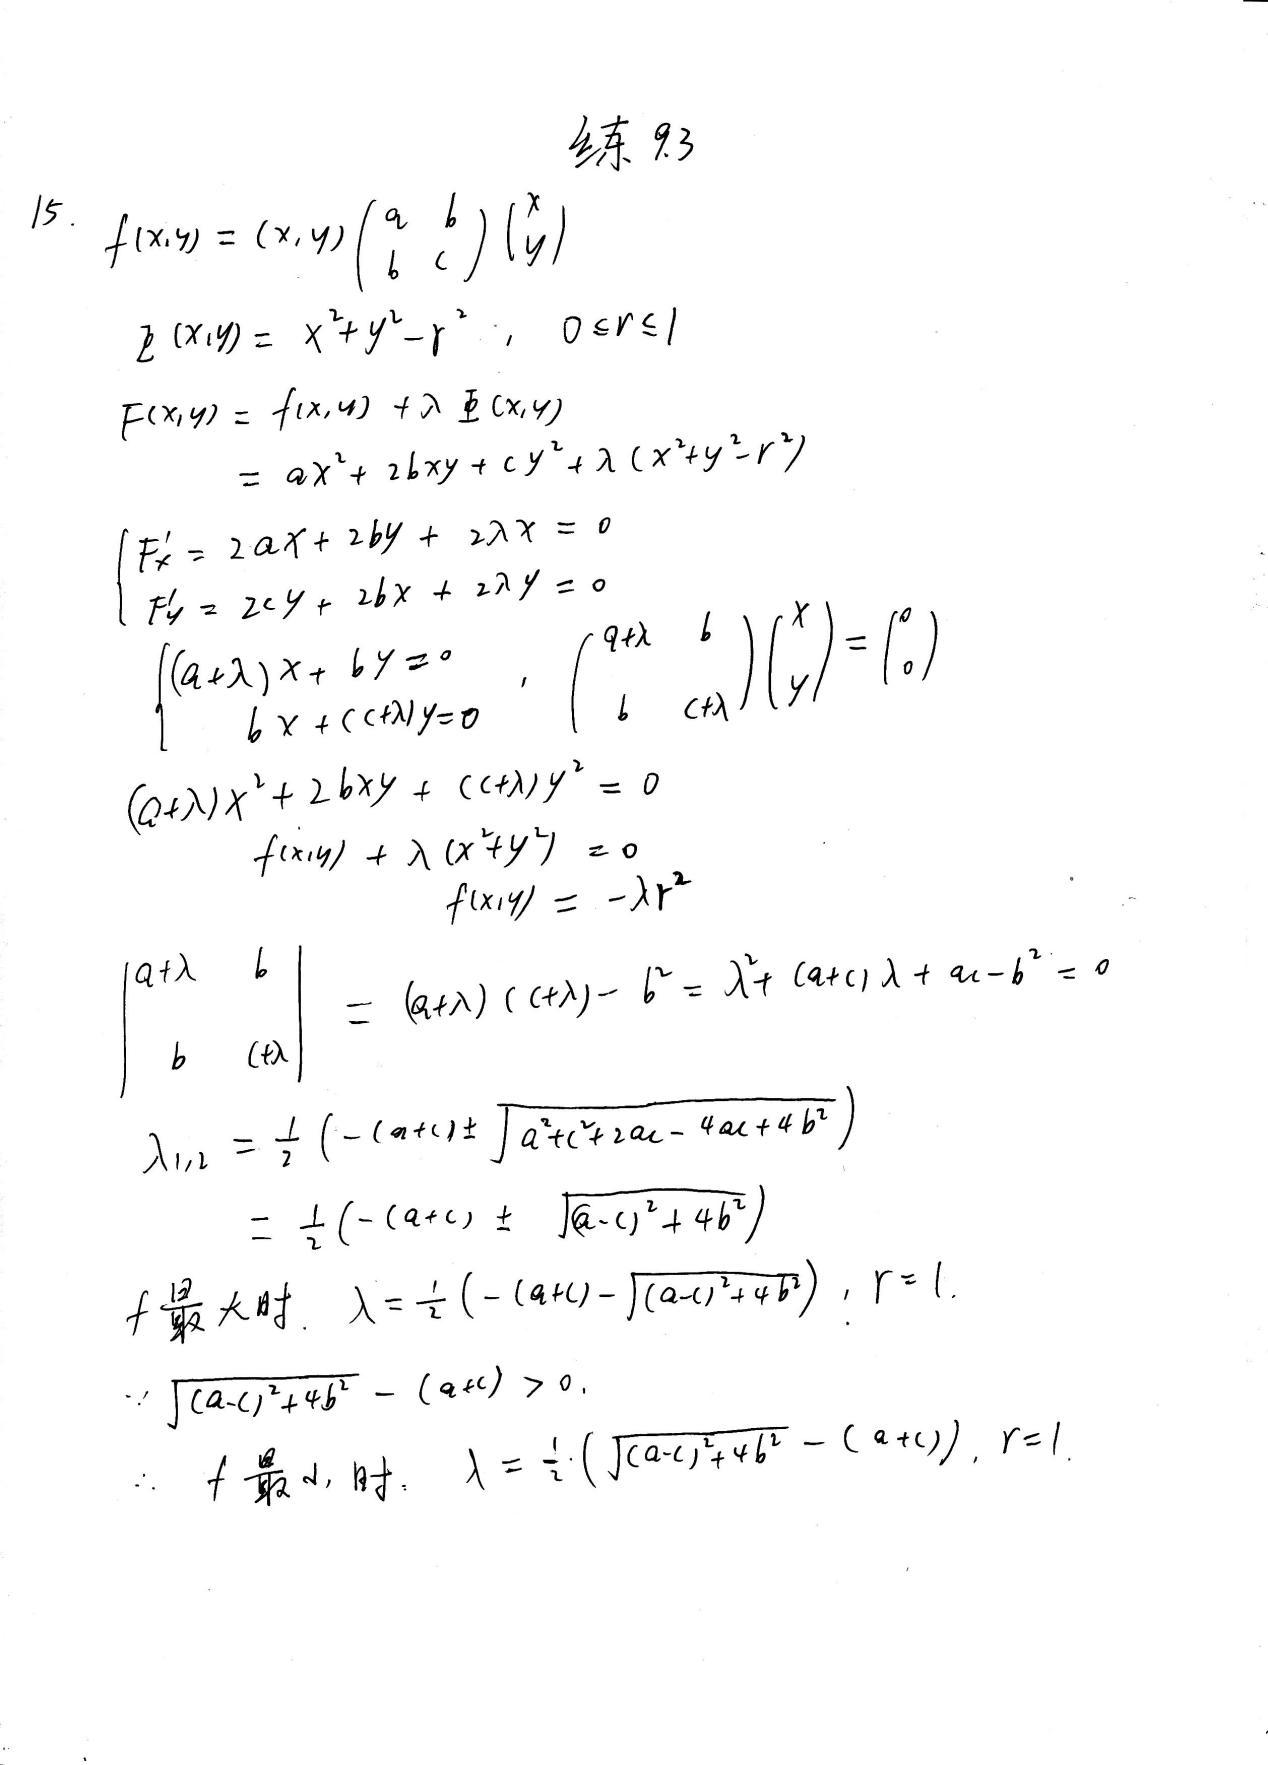 练 9.3
15. f(x,y) = (x,y) ( a b ; b c ) ( x ; y )
Φ(x,y) = x²+y²-r², 0≤r≤1
F(x,y) = f(x,y) + λΦ(x,y)
= ax²+2bxy+cy²+λ(x²+y²-r²)
{ F'x = 2ax+2by+2λx = 0
F'y = 2cy+2bx+2λy = 0
{ (a+λ)x+by=0
bx+(c+λ)y=0 , ( a+λ b ; b c+λ ) ( x ; y ) = ( 0 ; 0 )
(a+λ)x²+2bxy+(c+λ)y² = 0
f(x,y) + λ(x²+y²) = 0
f(x,y) = -λr²
| a+λ b ; b c+λ | = (a+λ)(c+λ)-b² = λ²+(a+c)λ+ac-b² = 0
λ1,2 = 1/2 (-(a+c)±√(a²+c²+2ac-4ac+4b²))
= 1/2 (-(a+c) ± √((a-c)²+4b²))
f最大时. λ = 1/2 (-(a+c)-√((a-c)²+4b²)), r=1.
∵ √((a-c)²+4b²) - (a+c) > 0,
∴ f最小时. λ = 1/2·(√((a-c)²+4b²) - (a+c)), r=1.